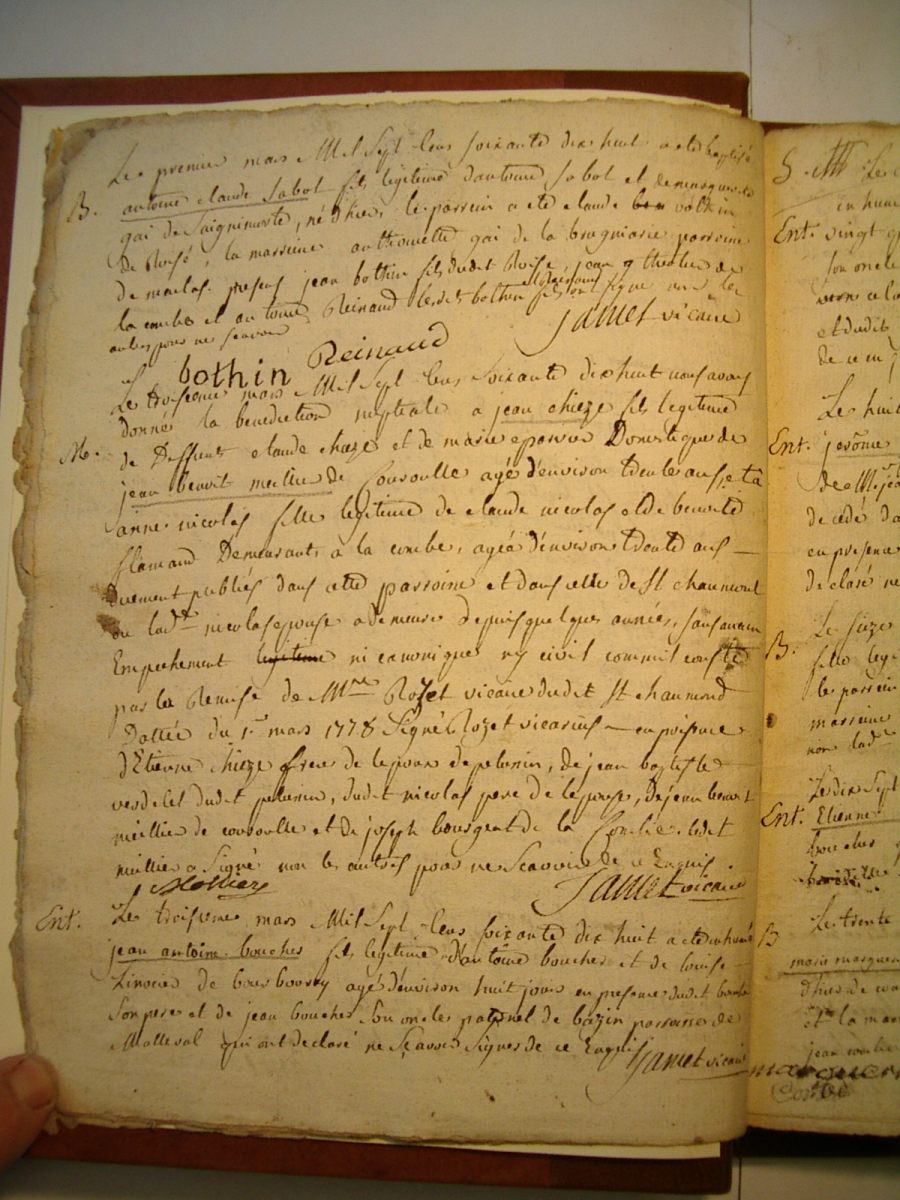 Le premier mars Mil Sept Cens soixante dix huit a eté baptisé
B. antoine claude Sabot fils legitime d'antoine Sabot et de marguerite
gai de Saignemorte, né d'hier, le parrein a eté claude bothin
de Roisé, la marreine anthoinette gai de la brugniare parroisse
de maclas. presens jean bothin fils dudit Roisé, jean
la combe et antoine Reinaud les dts bothin ont signé non les
autres pour ne scavoir
Jamet vicaire
bothin Reinaud
Le troisieme mars Mil Sept Cens soixante dix huit nous avons
donné la benediction nuptiale a jean chieze fils legitime
M. de Deffunt claude chieze et de marie Domestique de
jean benoit meillier de Couroulle agé d'environ trente ans et a
anne nicolas fille legitime de claude nicolas et de benoite
flamand Demeurants a la combe, agée d'environ trente ans
duement publiés dans cette parroisse et dans celle de St chaumont
ou ladte nicolas epouse a demeuré depuis quelques années, sans aucun
Empechement legitime ni canonique ny civil comm'il conste
par la Remise de Mre Rozet vicaire dudit St chaumond
Dattée du 1er mars 1778 Signé Rozet vicarius en presence
d'Etienne chieze frere de lepoux de pelussin, de jean baptiste
verdelet dudit pelussin, dudit nicolas pere de lepouse, de jean benoit
meillier de couroulle et de joseph bourgeat de la Combe. ledit
meillier a Signé non les autres pour ne Scavoir de ce Enquis
Meilier Jamet vicaire
Ent. Le troisieme mars Mil Sept Cens soixante dix huit a eté inhumé
jean antoine boucher fils legitime d'antoine boucher et de louise
Linossier de bourboury agé d'environ huit jours en presence dudit boucher
Son pere et de jean boucher Son oncle paternel de bazin parroisse de
Malleval qui ont declaré ne Scavoir Signer de ce Enquis
Jamet vicaire
Ent. vingt
Son oncle
et dudit
Le huit
Ent. jerôme
decedé
en presence
declaré ne
B. Le
fille legi
le parrein
marreine
non ladte
Le dix Sept
Ent. Etienne
boucher
Le trente
B
marie margue
d'hier de
et la mar
jean combe
marguer
Combe